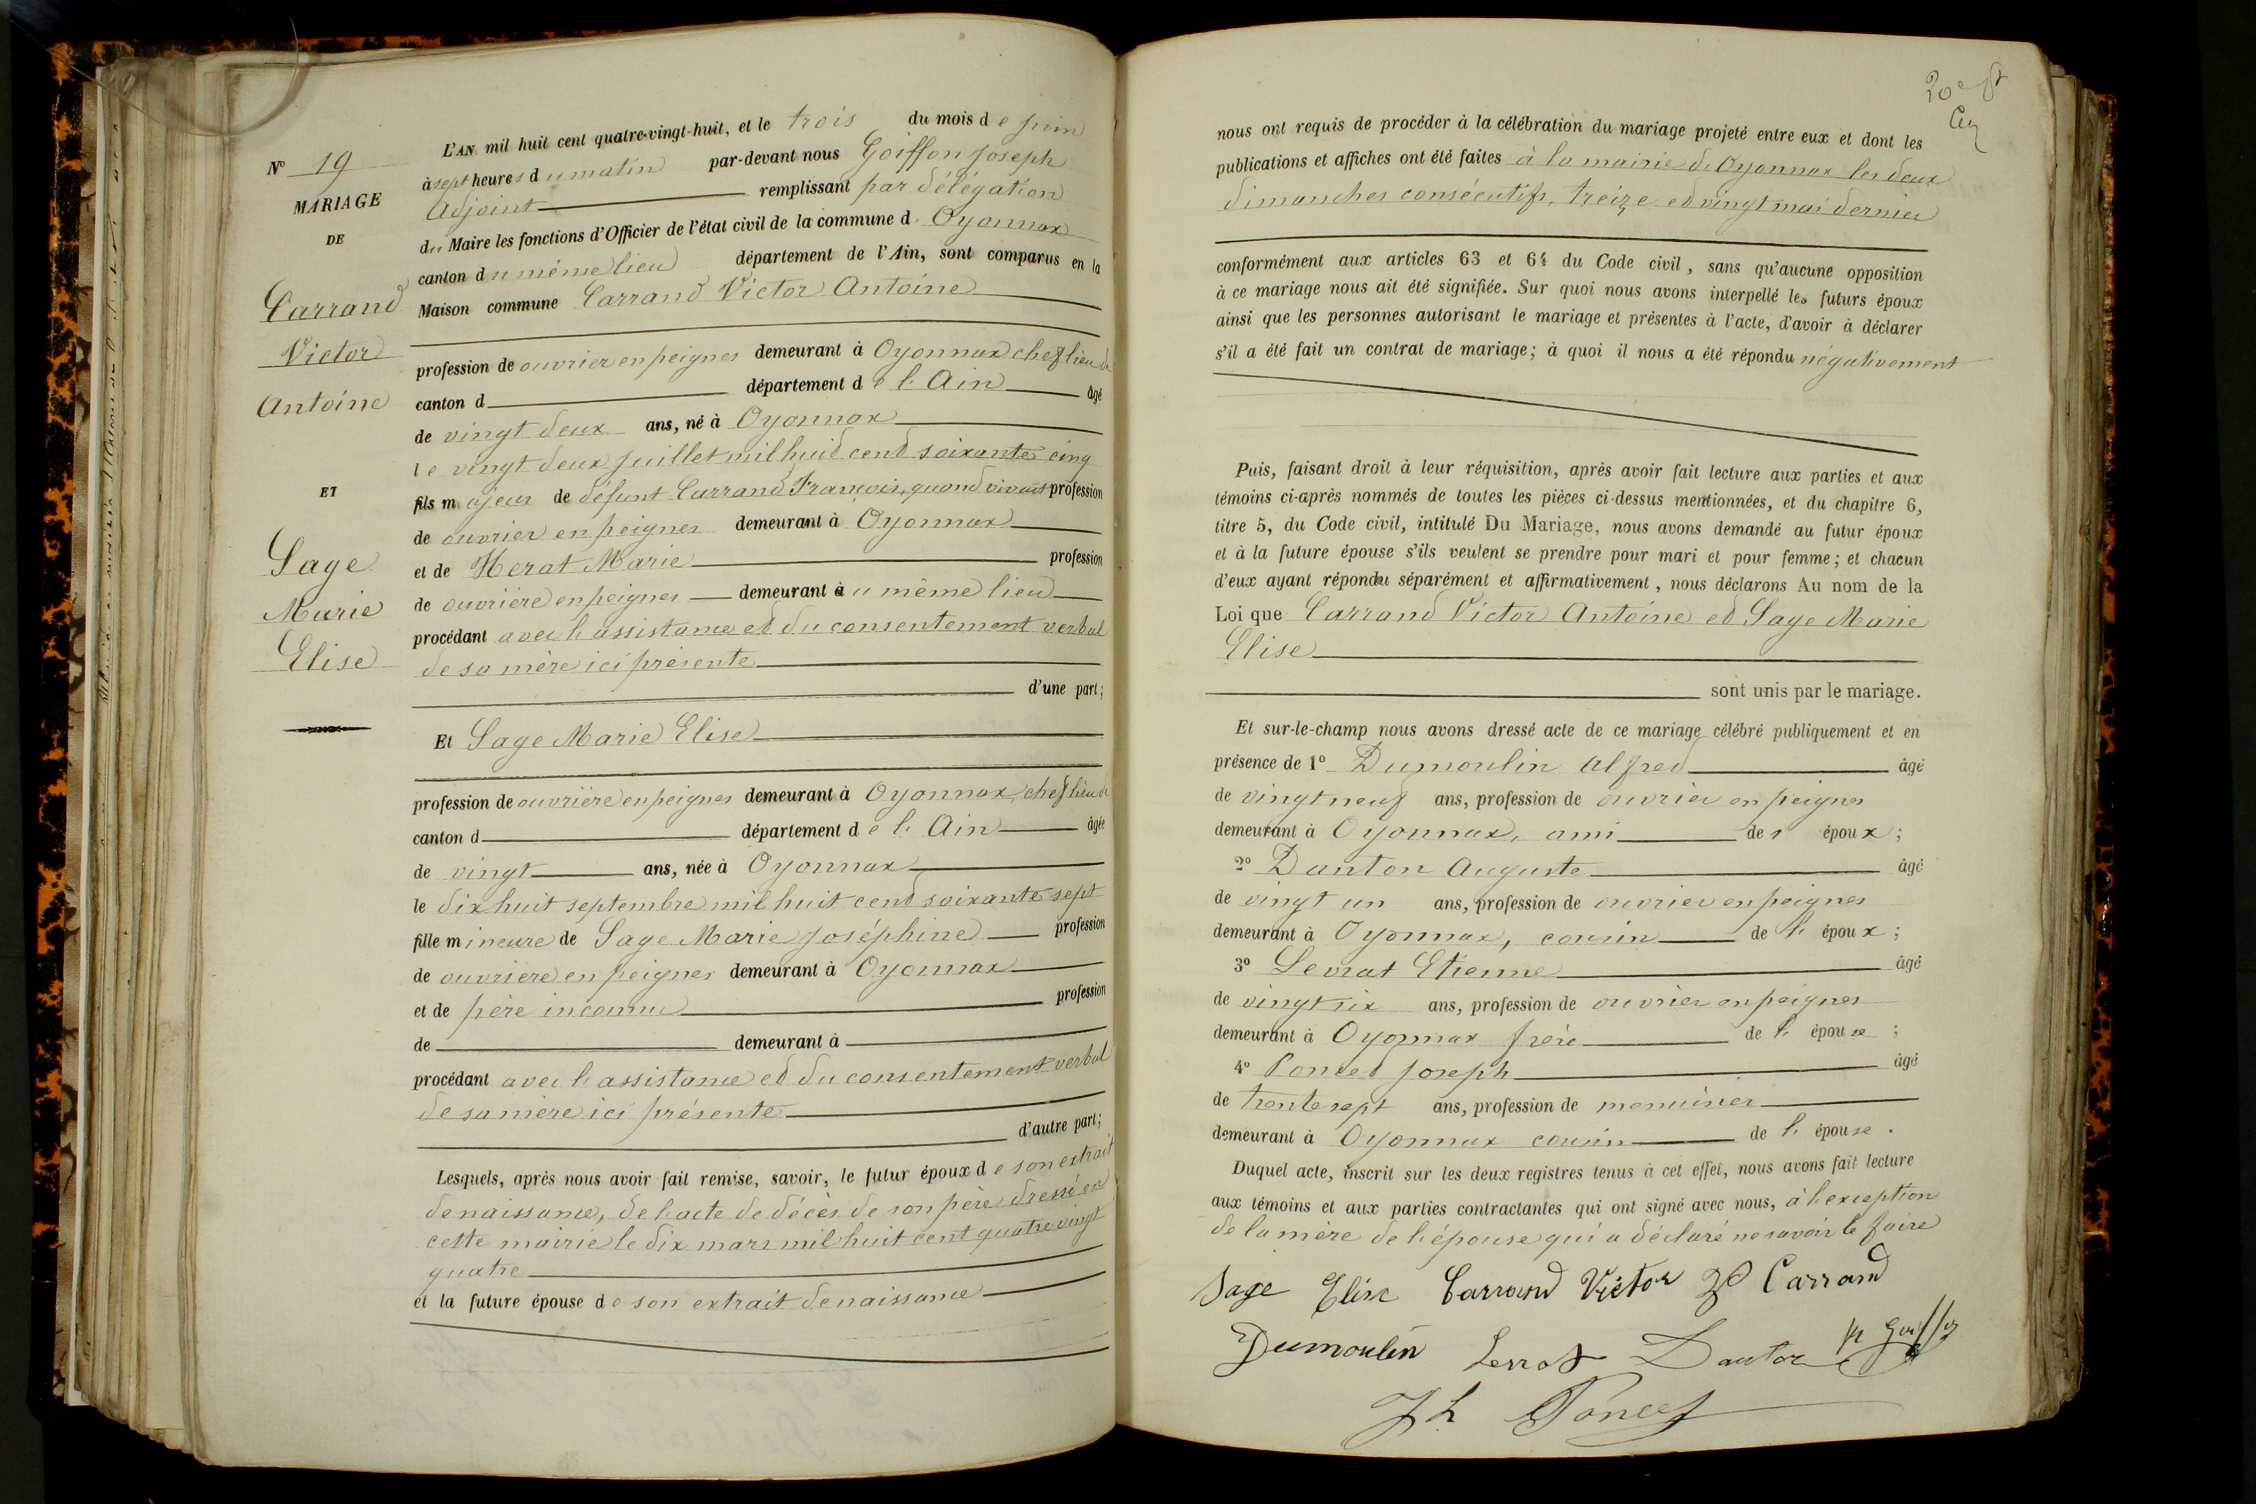 N° 19
MARIAGE
DE
Carrand
Victor
Antoine
ET
Sage
Marie
Elise
L'AN mil huit cent quatre-vingt-huit, et le trois du mois de juin
à sept heures du matin par-devant nous Goiffon Joseph
Adjoint remplissant par délégation
du Maire les fonctions d'Officier de l'état civil de la commune d Oyonnax
canton du même lieu département de l'Ain, sont comparus en la
Maison commune Carrand Victor Antoine
profession de ouvrier en peignes demeurant à Oyonnax, chef lieu de
canton d département de l'Ain âgé
de vingt deux ans, né à Oyonnax
le vingt deux juillet mil huit cent soixante cinq
fils majeur de défunt Carrand François, quand vivant profession
de ouvrier en peignes demeurant à Oyonnax
et de Herat Marie profession
de ouvrière en peignes demeurant au même lieu
procédant avec l'assistance et du consentement verbal
de sa mère ici présente
d'une part;
Et Sage Marie Elise
profession de ouvrière en peignes demeurant à Oyonnax, chef lieu de
canton d département de l'Ain âgée
de vingt ans, née à Oyonnax
le dix huit septembre mil huit cent soixante sept
fille mineure de Sage Marie Joséphine profession
de ouvrière en peignes demeurant à Oyonnax
et de père inconnu profession
de demeurant à
procédant avec l'assistance et du consentement verbal
de sa mère ici présente
d'autre part;
Lesquels, après nous avoir fait remise, savoir, le futur époux de son extrait
de naissance, de l'acte de décès de son père dressé en
cette mairie le dix mars mil huit cent quatre vingt
quatre
et la future épouse de son extrait de naissance
20e
nous ont requis de procéder à la célébration du mariage projeté entre eux et dont les
publications et affiches ont été faites à la mairie de Oyonnax les deux
dimanches consécutifs, treize et vingt mai dernier
conformément aux articles 63 et 64 du Code civil, sans qu'aucune opposition
à ce mariage nous ait été signifiée. Sur quoi nous avons interpellé les futurs époux
ainsi que les personnes autorisant le mariage et présentes à l'acte, d'avoir à déclarer
s'il a été fait un contrat de mariage; à quoi il nous a été répondu négativement
Puis, faisant droit à leur réquisition, après avoir fait lecture aux parties et aux
témoins ci-après nommés de toutes les pièces ci-dessus mentionnées, et du chapitre 6,
titre 5, du Code civil, intitulé Du Mariage, nous avons demandé au futur époux
et à la future épouse s'ils veulent se prendre pour mari et pour femme; et chacun
d'eux ayant répondu séparément et affirmativement, nous déclarons Au nom de la
Loi que Carrand Victor Antoine et Sage Marie
Elise
sont unis par le mariage.
Et sur-le-champ nous avons dressé acte de ce mariage célébré publiquement et en
présence de 1° Dumoulin Alfred âgé
de vingt neuf ans, profession de ouvrier en peignes
demeurant à Oyonnax, ami des époux;
2° Danton Auguste âgé
de vingt un ans, profession de ouvrier en peignes
demeurant à Oyonnax, cousin de l' époux;
3° Levrat Etienne âgé
de vingt six ans, profession de ouvrier en peignes
demeurant à Oyonnax frère de l' épouse;
4° Poncet Joseph âgé
de trente sept ans, profession de menuisier
demeurant à Oyonnax cousin de l' épouse.
Duquel acte, inscrit sur les deux registres tenus à cet effet, nous avons fait lecture
aux témoins et aux parties contractantes qui ont signé avec nous, à l'exception
de la mère de l'épouse qui a déclaré ne savoir le faire
Sage Elise Carrand Victor Carrand
Dumoulin Levrat Danton Goiffon
Jh Poncet